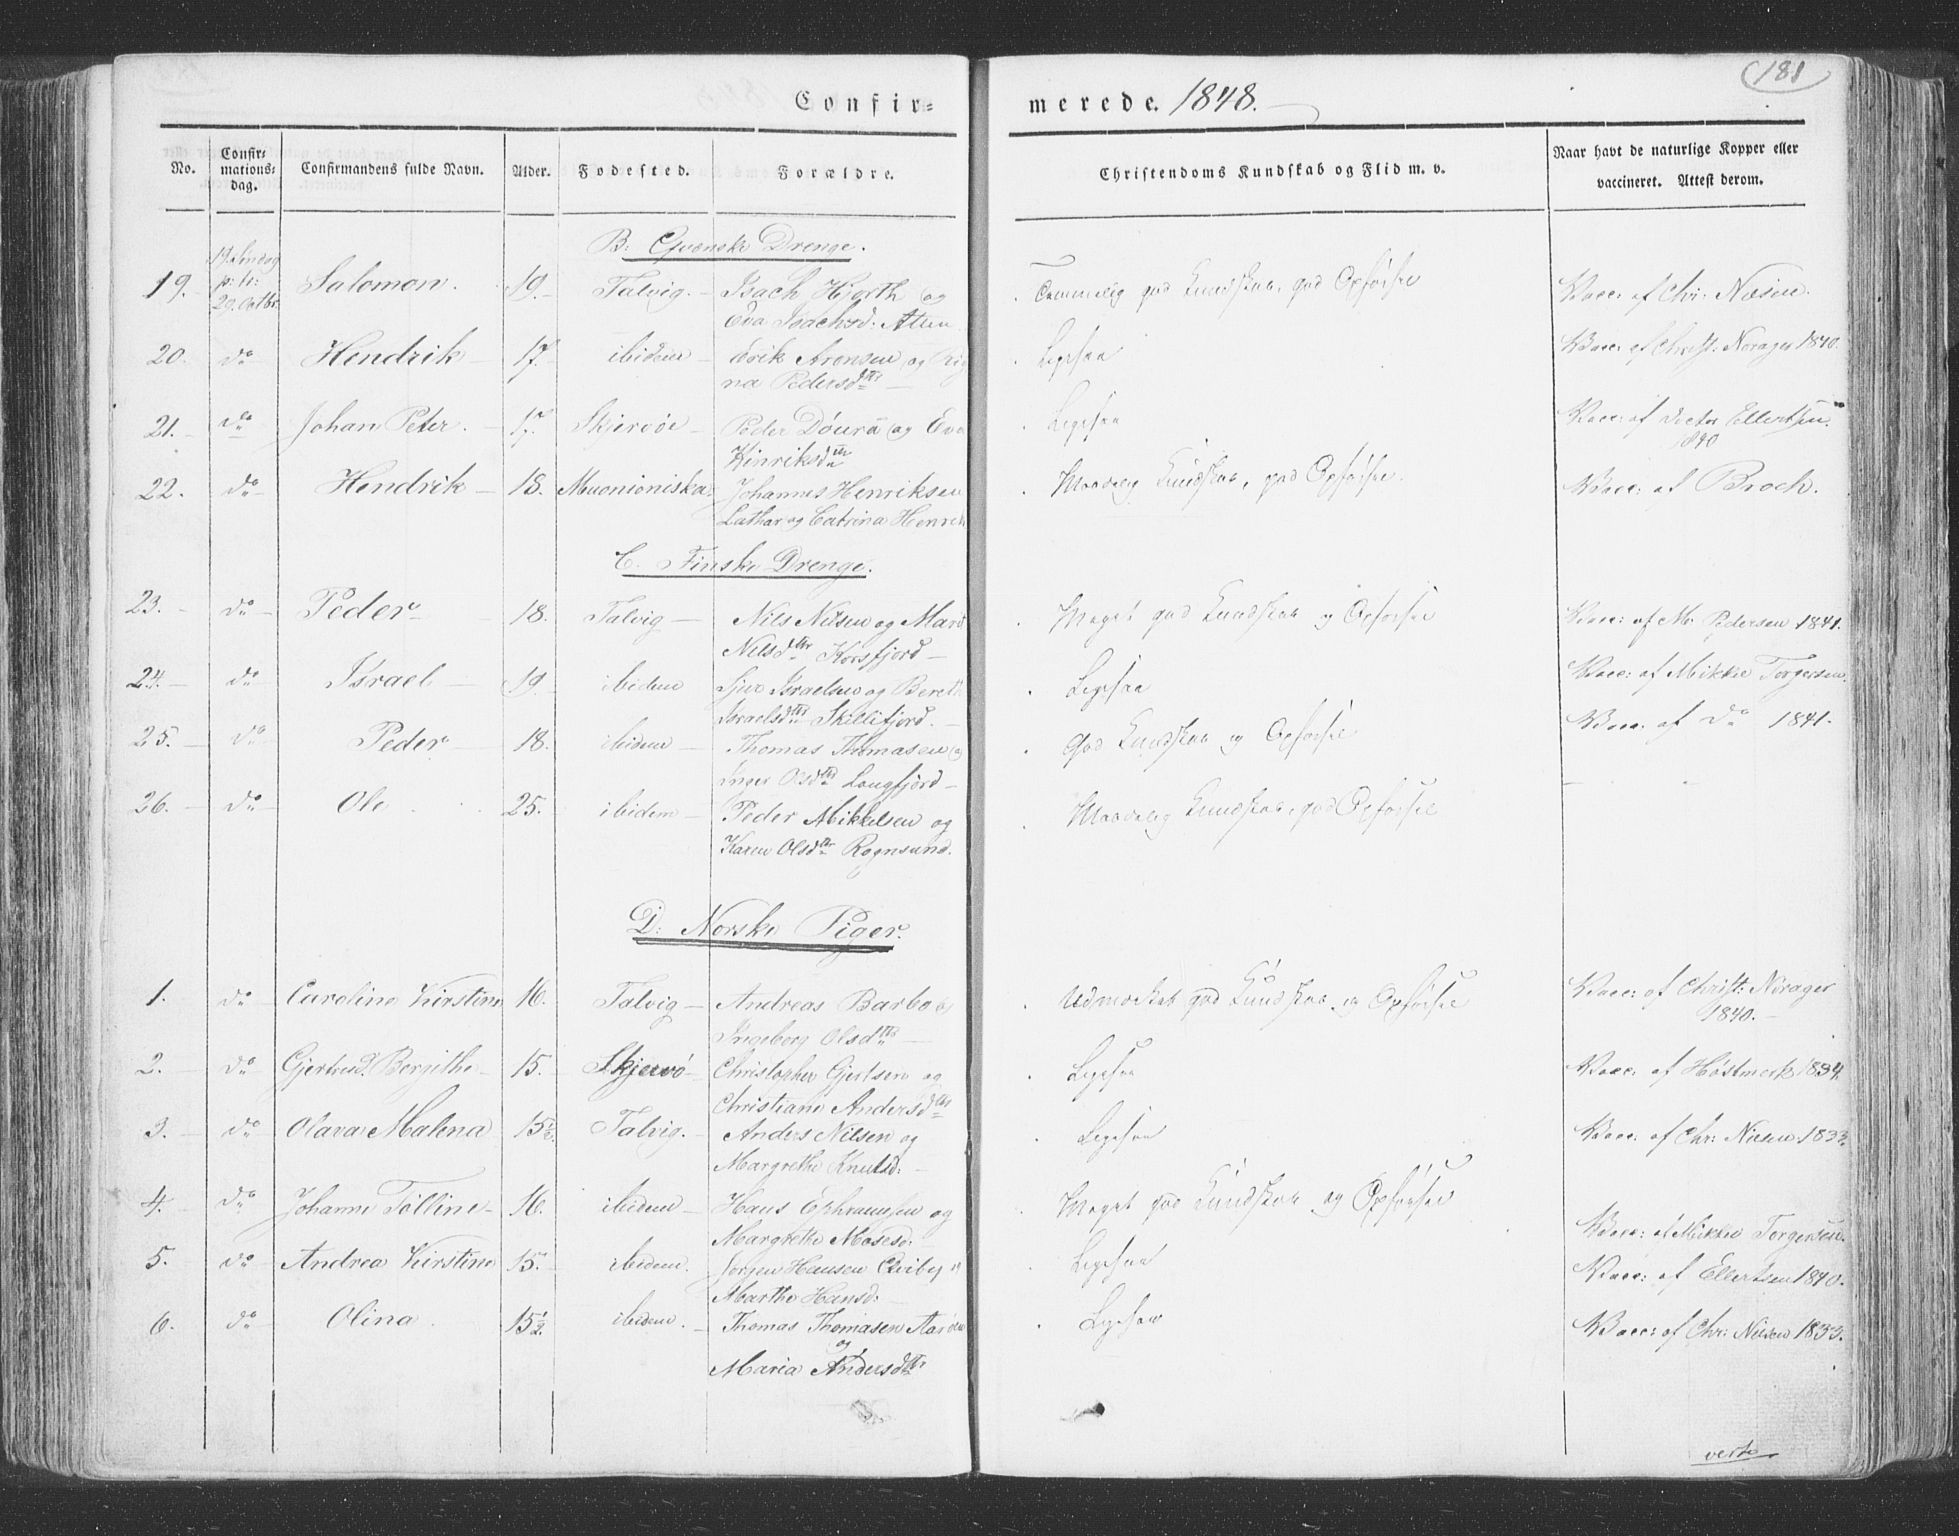 181
Confir= merede. 1848.
No. Confir= mations= dag. Confirmandens fulde Navn. Alder. Fødested. Forældre. Christendoms Kundskab og Flid m. v. Naar havt de naturlige Kopper eller vaccineret. Attest derom.
B: Qvænske Drenge.
19. p: tr: 29. Octbr Salomon. 19. Talvig. Isach Hjorth og Temmelig god Kundskab, god Opførsel Vacc: af Chr: Nielsen.
Eva Isachsd: Alten
20. do Hendrik 17. ibidem Erik Aronsen og Ligesaa Vacc: af Christ: Norager 1840.
na Pedersdtr
21. do Johan Peter. 17. Skjervøe Peder Doura og Eva Ligesaa Vacc: af Doctor Ellertsen 1840
Hinriksdtr
22. do Hendrik 18. Muonioniska Johannes Henriksen Maadelig Kundskab, god Opførsel. Vacc: af Broch.
Lathar og Catrina Henrik
C. Finske Drenge.
23. do Peder 18. Talvig Nils Nilsen og Marit Meget god Kundskab og Opførsel Vacc: af M. Pedersen 1841.
Nilsdtr Korsfjord
24. do Israel 19 ibidem Sjur Israelsen og Bereth Ligesaa Vacc: af Mikkel Torgersen.
Israelsdtr Skillifjord.
25. do Peder 18. ibidem Thomas Thomasen og God Kundskab og Opførsel Vacc: af Do 1841.
Inger Olsdtr Langfjord
26. do Ole 25. ibidem Peder Mikkelsen og Maadelig Kundskab, god Opførsel
Karen Olsdtr Rognsund.
D: Norske Piger.
1. do Caroline Kirstine 16. Talvig Andreas Barbo og Udmærket god Kundskab og Opførsel Vacc: af Christ: Norager 1840.
Ingeborg Olsdtr
2. do Gjertrud Bergithe 15. Skjervø Christopher Gjertsen og Ligesaa Vacc: af Høstmerk 1834.
Christiane Andersdtr
3. do Olava Malena 15½. Talvig. Anders Nilsen og Ligesaa Vacc: af Chr: Nilsen 1833.
Margrethe Knutsd:
4. do Johanne Tolline 16. ibidem Hans Ephraimsen og Meget god Kundskab og Opførsel Vacc: af Mikkel Torgersen.
Margrethe Mosesd:
5. do Andrea Kirstine 15. ibidem. Jørgen Hansen Qviby og Ligesaa Vacc: af Ellertsen 1840.
Marthe Hansd:
6. do Olina 15½. ibidem. Thomas Thomasen Ligesaa Vacc: af Chr: Nilsen 1833.
og
Maria Andersdtr
verte